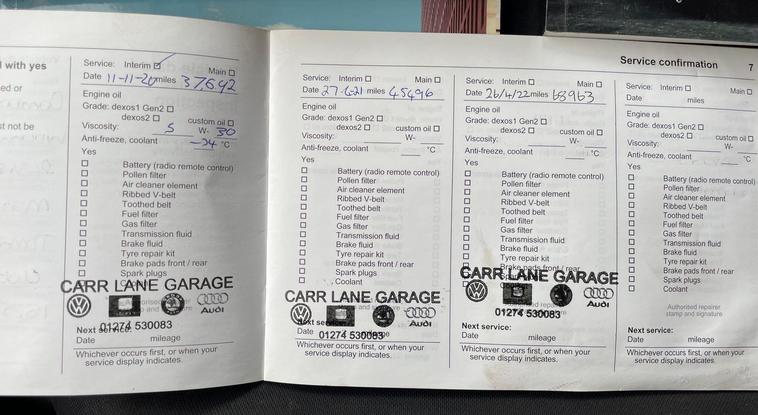 l with yes
ed or
st not be
Service: Interim ☑ Main ☐
Date 11-11-20 miles 37642
Engine oil
Grade: dexos1 Gen2 ☐
dexos2 ☐ custom oil ☐
Viscosity: 5 W- 30
Anti-freeze, coolant -24 °C
Yes
☐ Battery (radio remote control)
☐ Pollen filter
☐ Air cleaner element
☐ Ribbed V-belt
☐ Toothed belt
☐ Fuel filter
☐ Gas filter
☐ Transmission fluid
☐ Brake fluid
☐ Tyre repair kit
☐ Brake pads front / rear
☐ Spark plugs
CARR LANE GARAGE
Audi
01274 530083
Next service:
Date mileage
Whichever occurs first, or when your
service display indicates.
Service: Interim ☐ Main ☐
Date 27-6-21 miles 45496
Engine oil
Grade: dexos1 Gen2 ☐
dexos2 ☐ custom oil ☐
Viscosity: W-
Anti-freeze, coolant °C
Yes
☐ Battery (radio remote control)
☐ Pollen filter
☐ Air cleaner element
☐ Ribbed V-belt
☐ Toothed belt
☐ Fuel filter
☐ Gas filter
☐ Transmission fluid
☐ Brake fluid
☐ Tyre repair kit
☐ Brake pads front / rear
☐ Spark plugs
☐ Coolant
CARR LANE GARAGE
Audi
Next service:
01274 530083
Date
Whichever occurs first, or when your
service display indicates.
Service confirmation 7
Service: Interim ☐ Main ☐
Date 26/4/22 miles 68963
Engine oil
Grade: dexos1 Gen2 ☐
dexos2 ☐ custom oil ☐
Viscosity: W-
Anti-freeze, coolant °C
Yes
☐ Battery (radio remote control)
☐ Pollen filter
☐ Air cleaner element
☐ Ribbed V-belt
☐ Toothed belt
☐ Fuel filter
☐ Gas filter
☐ Transmission fluid
☐ Brake fluid
☐ Tyre repair kit
☐ Brake pads front / rear
CARR LANE GARAGE
Audi
01274 530083
Next service:
Date mileage
Whichever occurs first, or when your
service display indicates.
Service: Interim ☐ Main ☐
Date miles
Engine oil
Grade: dexos1 Gen2 ☐
dexos2 ☐ custom oil ☐
Viscosity: W-
Anti-freeze, coolant °C
Yes
☐ Battery (radio remote control)
☐ Pollen filter
☐ Air cleaner element
☐ Ribbed V-belt
☐ Toothed belt
☐ Fuel filter
☐ Gas filter
☐ Transmission fluid
☐ Brake fluid
☐ Tyre repair kit
☐ Brake pads front / rear
☐ Spark plugs
☐ Coolant
Authorised repairer
stamp and signature
Next service:
Date mileage
Whichever occurs first, or when your
service display indicates.